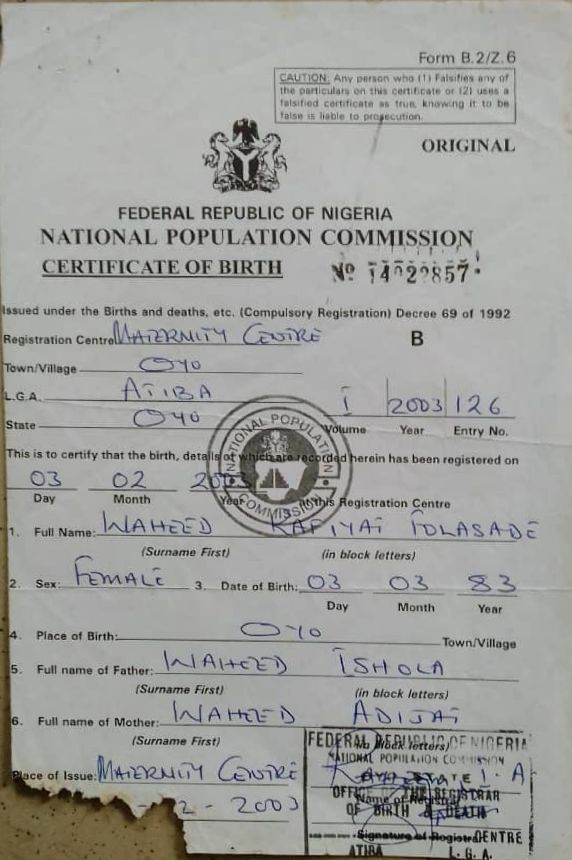 Form B.2/Z.6
CAUTION: Any person who (1) Falsifies any of
the particulars on this certificate or (2) uses a
falsified certificate as true, knowing it to be
false is liable to prosecution.
ORIGINAL
FEDERAL REPUBLIC OF NIGERIA
NATIONAL POPULATION COMMISSION
CERTIFICATE OF BIRTH Nº
Issued under the Births and deaths, etc. (Compulsory Registration) Decree 69 of 1992
Registration Centre MATERNITY CENTRE B
Town/Village OYO
L.G.A. ATIBA I 2003 126
State OYO Volume Year Entry No.
This is to certify that the birth, details of which are recorded herein has been registered on
03 02 2003
Day Month Year at this Registration Centre
NATIONAL POPULATION COMMISSION
1. Full Name: WAHEED TOLASADE
(Surname First) (in block letters)
2. Sex: FEMALE 3. Date of Birth: 03 03 83
Day Month Year
4. Place of Birth: OYO Town/Village
5. Full name of Father: WAHEED ISHOLA
(Surname First) (in block letters)
6. Full name of Mother: WAHEED
(Surname First) (in block letters)
FEDERAL REPUBLIC OF NIGERIA
NATIONAL POPULATION COMMISSION
Place of Issue: MATERNITY CENTRE I. A
OFFICE OF THE REGISTRAR
Name of Registrar
OF BIRTH & DEATH
2 - 2003
Signature of Registrar
ATIBA L.G.A.